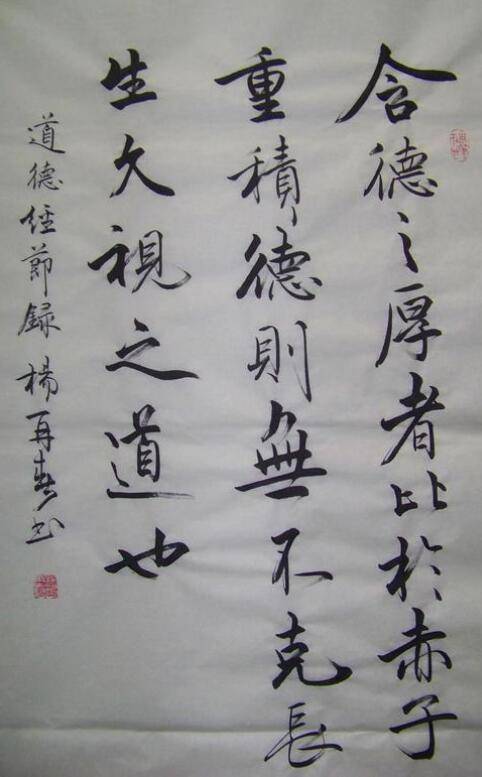 含德之厚者比於赤子
重積德則無不克長
生久視之道也
道德經節録楊再春书